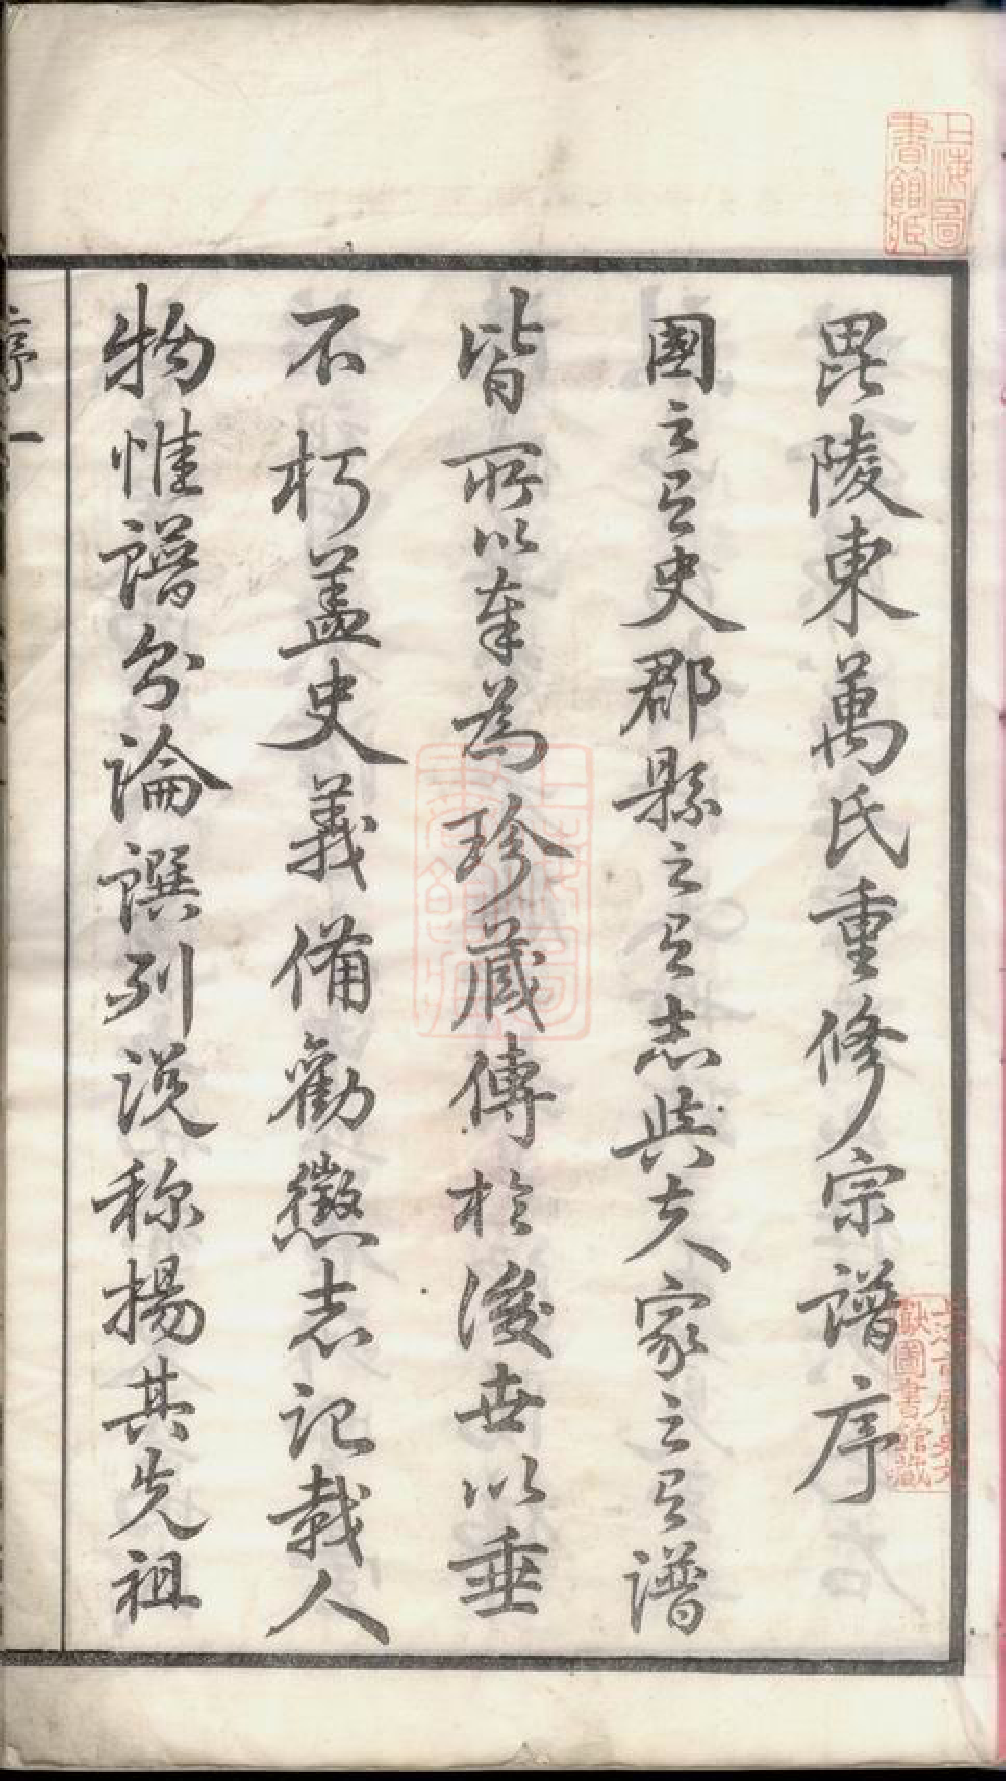 毘陵東萬氏重修宗譜序
國之有史郡縣之有志與夫家之有譜
皆所以奉為珍藏傳於後世以垂
不朽盖史義備勸懲志記載人
物惟譜則論譔列說称揚其先祖
序一
上海圖書館藏
上海圖書館藏
上海市歷史文獻圖書館藏